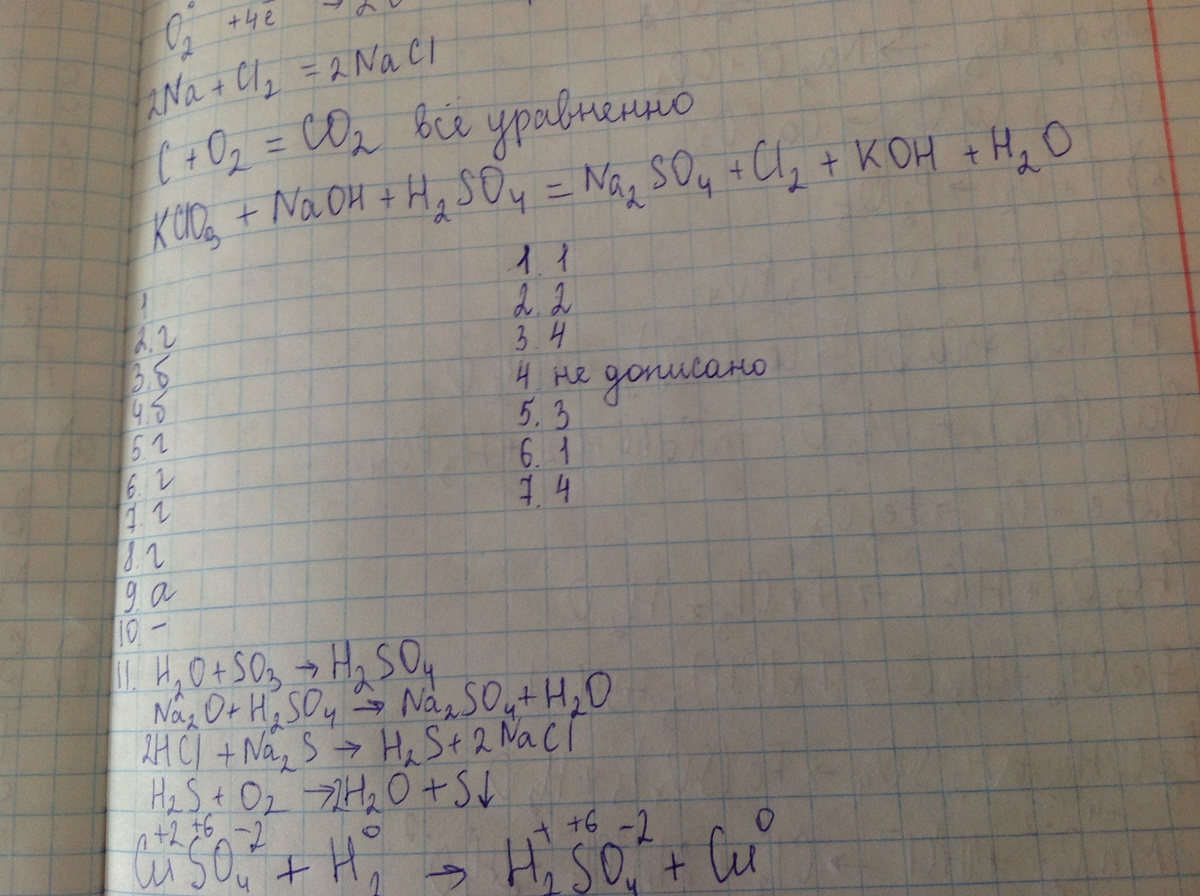 O₂⁰ +4e⁻ → 2
2Na + Cl₂ = 2NaCl
C + O₂ = CO₂ всё уравненно
KClO₃ + NaOH + H₂SO₄ = Na₂SO₄ + Cl₂ + KOH + H₂O
1
2. г
3. б
4. б
5. г
6. г
7. г
8. г
9. а
10. –
1. 1
2. 2
3 4
4 не дописано
5. 3
6. 1
7. 4
11. H₂O + SO₃ → H₂SO₄
Na₂O + H₂SO₄ → Na₂SO₄ + H₂O
2HCl + Na₂S → H₂S + 2NaCl
H₂S + O₂ → 2H₂O + S↓
+2 +6 -2 0 + +6 -2 0
CuSO₄ + H₂ → H₂SO₄ + Cu